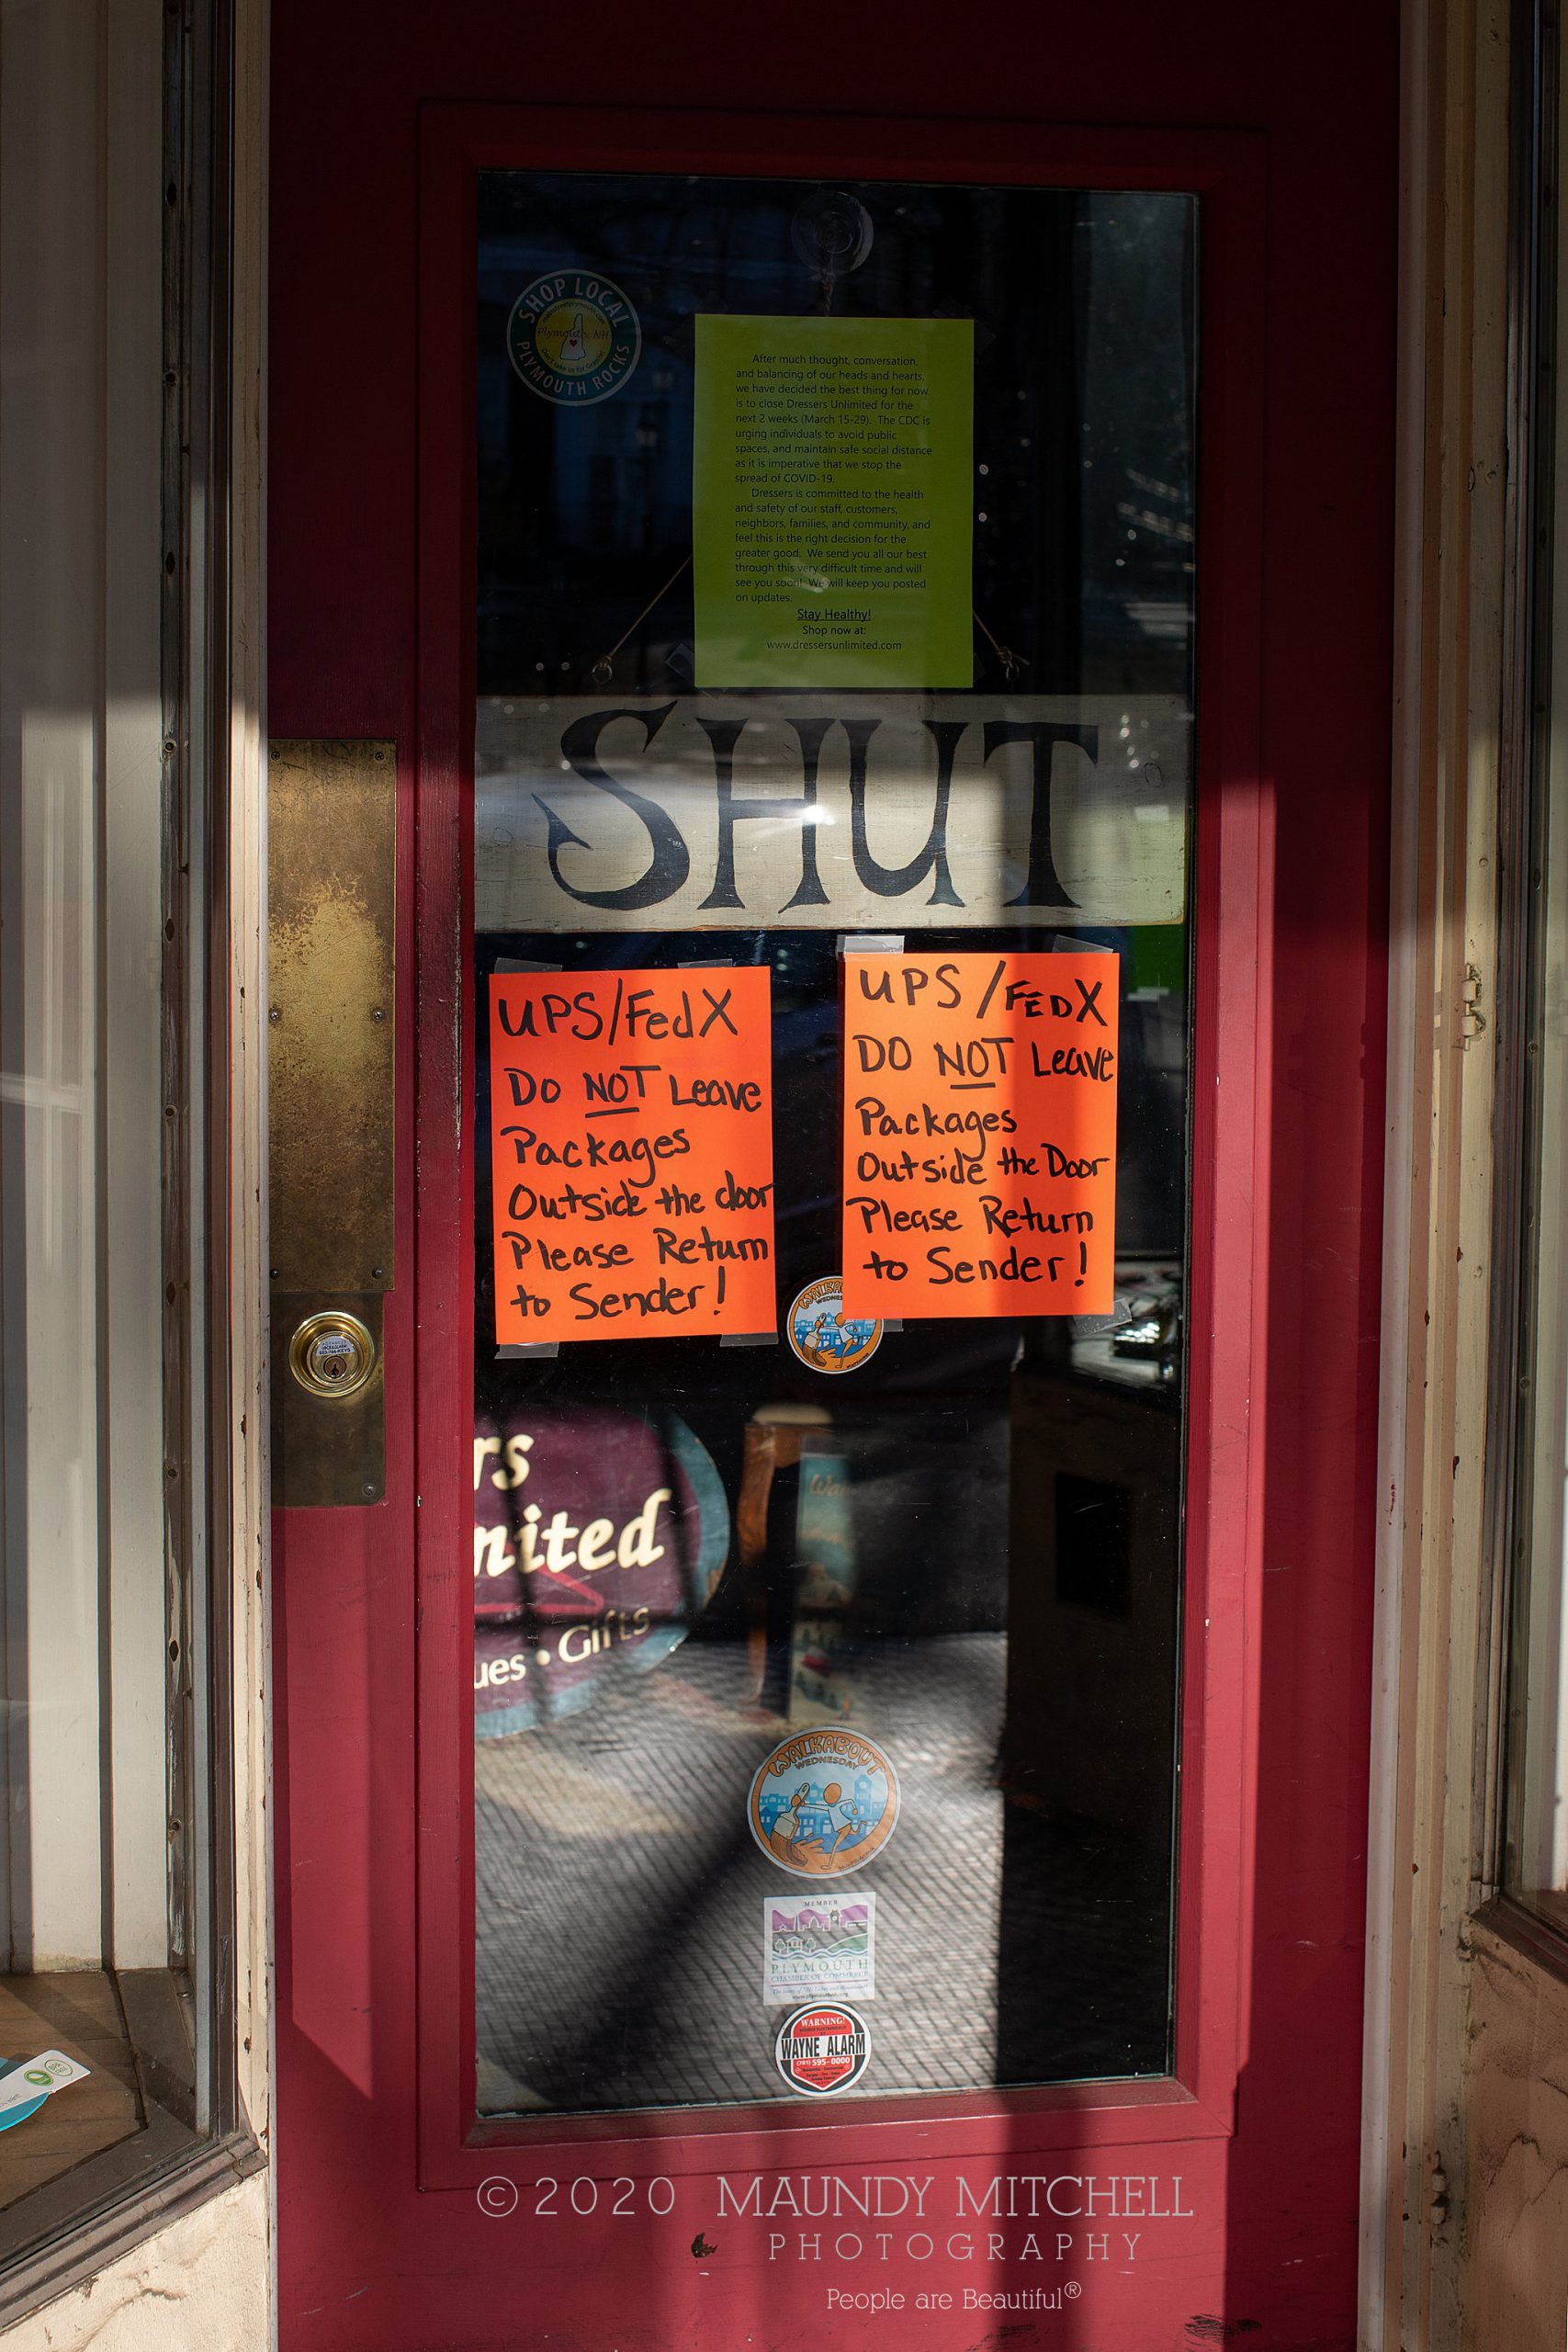 SHOP LOCAL
Plymouth, NH
PLYMOUTH ROCKS
After much thought, conversation,
and balancing of our heads and hearts,
we have decided the best thing for now
is to close Dressers Unlimited for the
next 2 weeks (March 15-29). The CDC is
urging individuals to avoid public
spaces, and maintain safe social distance
as it is imperative that we stop the
spread of COVID-19.
Dressers is committed to the health
and safety of our staff, customers,
neighbors, families, and community, and
feel this is the right decision for the
greater good. We send you all our best
through this very difficult time and will
see you soon! We will keep you posted
on updates.
Stay Healthy!
Shop now at:
www.dressersunlimited.com
SHUT
UPS/FedX
Do NOT Leave
Packages
Outside the door
Please Return
to Sender!
UPS/FEDX
DO NOT Leave
Packages
Outside the Door
Please Return
to Sender!
WALKABOUT
WEDNESDAY
rs
nited
ues • Gifts
WALKABOUT
WEDNESDAY
MEMBER
PLYMOUTH
CHAMBER OF COMMERCE
WARNING!
WAYNE ALARM
(781) 595-0000
©2020 MAUNDY MITCHELL
PHOTOGRAPHY
People are Beautiful®